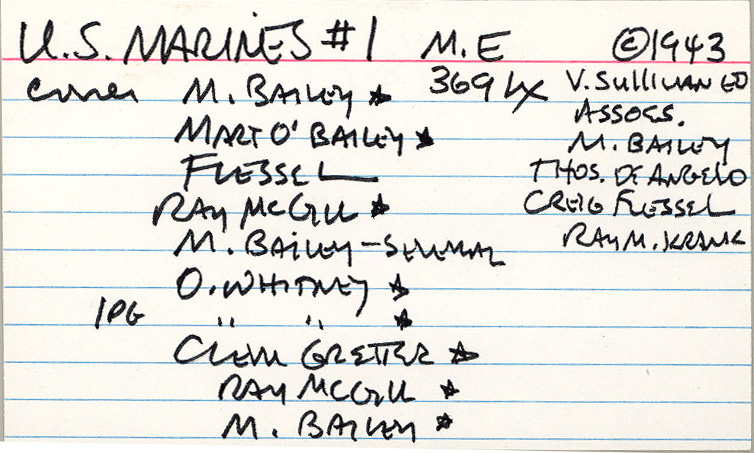 U.S. MARINES #1 M.E ©1943
cover M. BAILEY ★ 369 Lx V. SULLIVAN ED
ASSOCS.
MART O' BAILEY ★ M. BAILEY
FLESSEL THOS. DE ANGELO
RAY MCGILL ★ CREIG FLESSEL
M. BAILEY – SEVERAL RAY M. KRANK
O. WHITNEY ★
1PG " " ★
CLEM GRETTER ★
RAY MCGILL ★
M. BAILEY ★